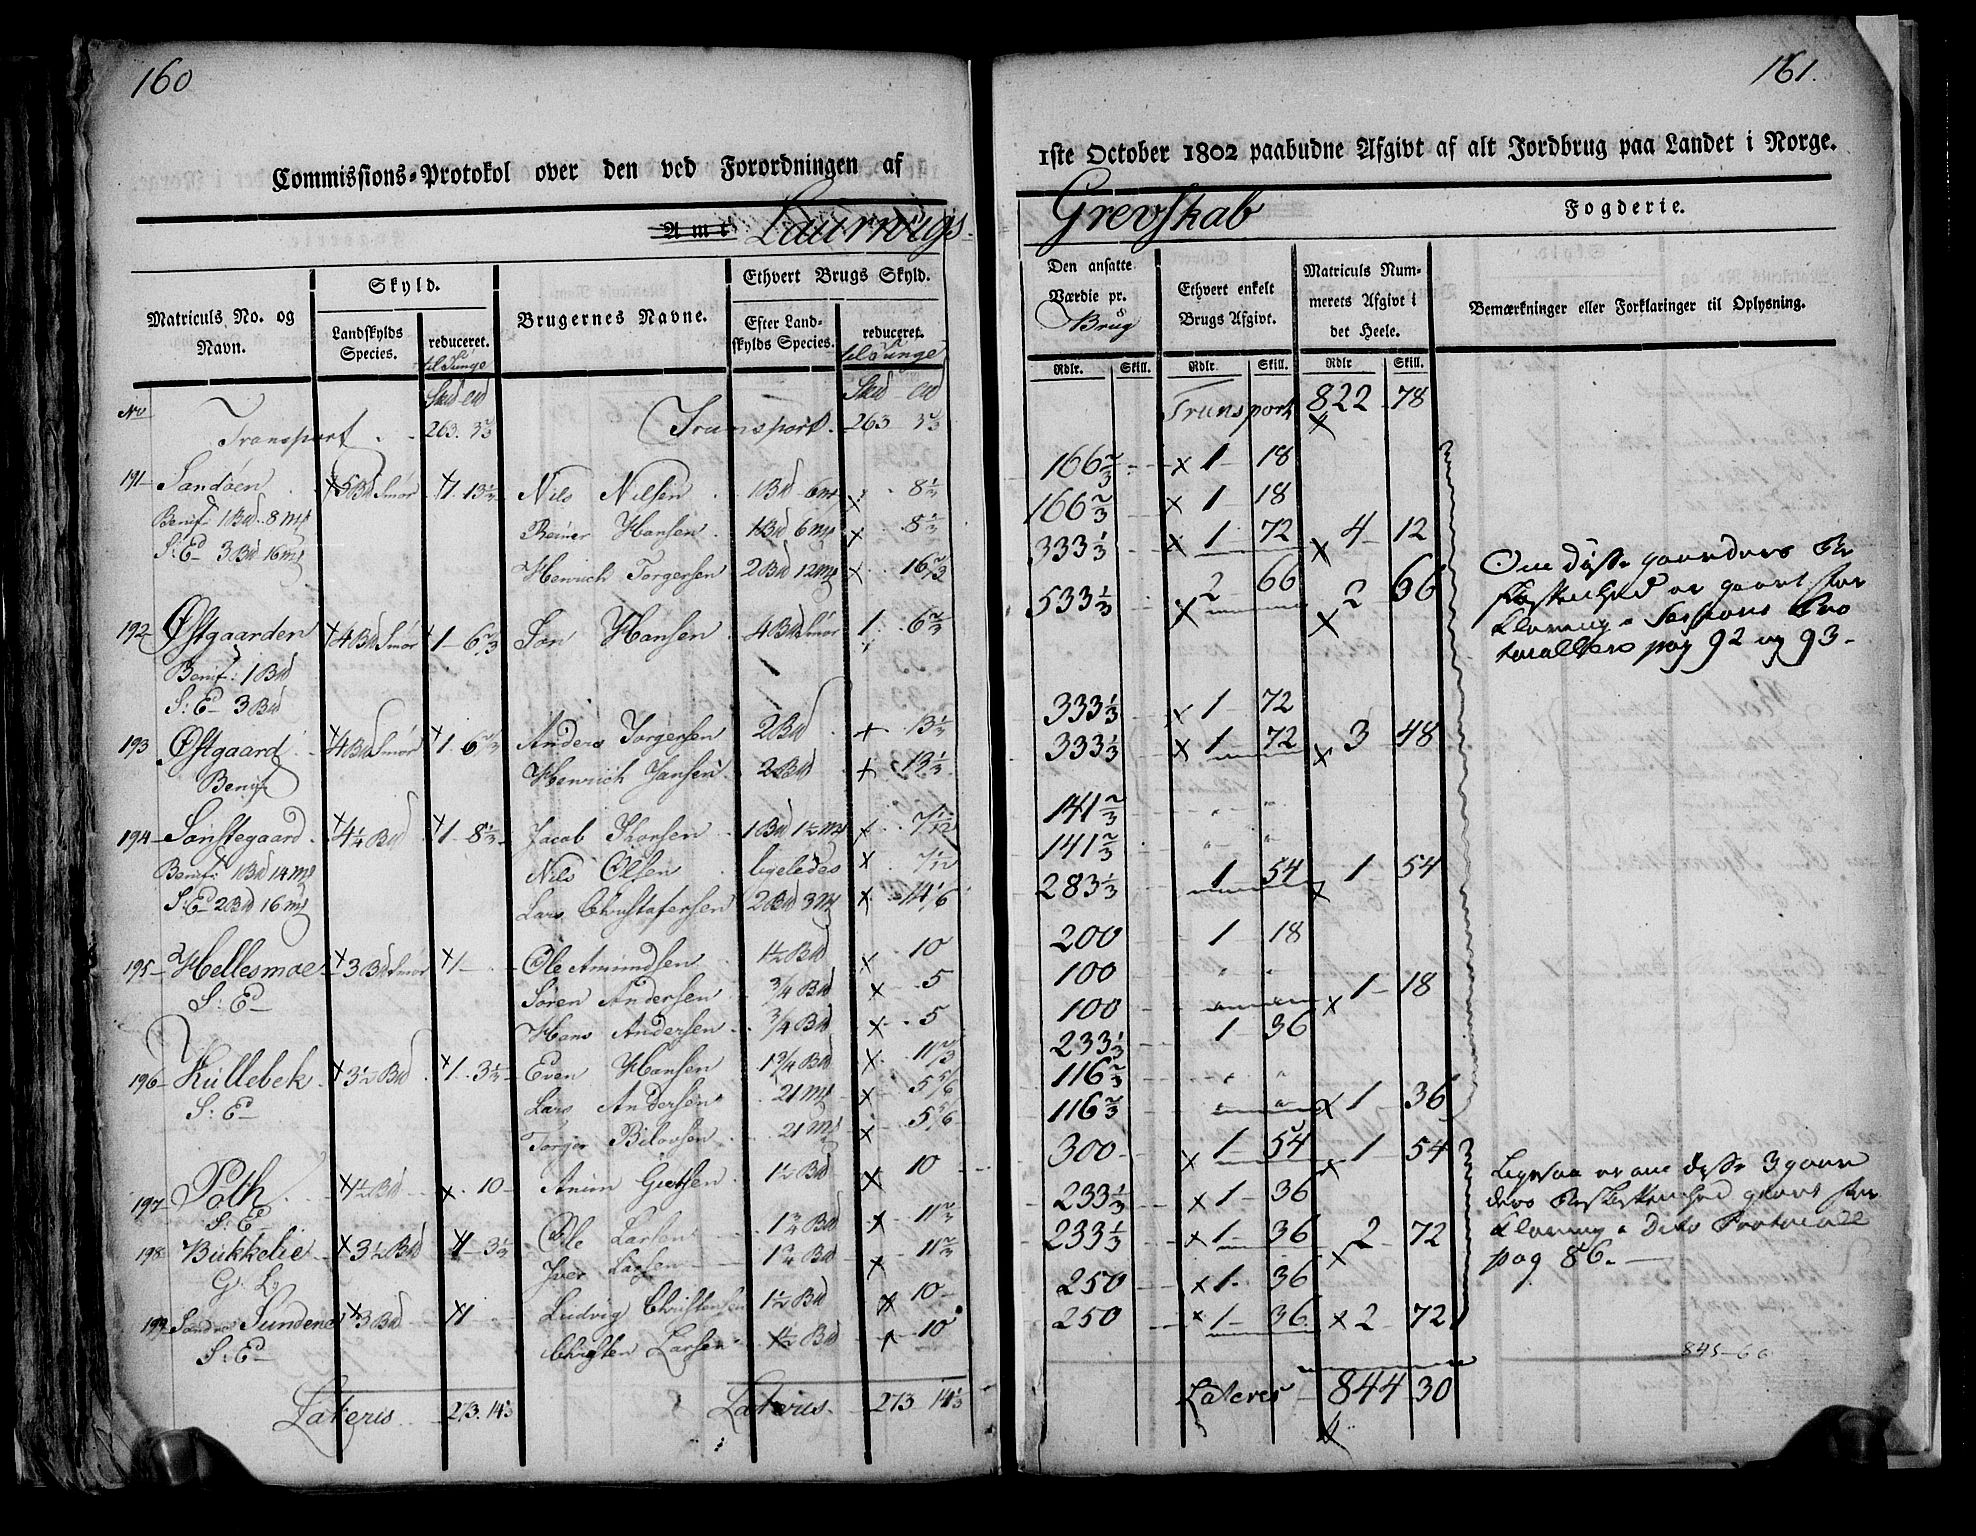 160
Commissions-Protokol over den ved Forordningen af
Amt Laurvigs-
Matriculs No. og Navn.
Skyld.
Landskylds Species.
reduceret.
til Tunge
Brugernes Navne.
Ethvert Brugs Skyld.
Efter Landskylds Species.
reduceret.
til Tunge
No
Transport 263. 3⅔ Transport 263 3⅔
191 Sandöen 5 Bd Smør 1 13⅓ Nils Nilsen 1Bd 6 mk 8⅓
Benif: 1 Bd 8 mk Reiner Hansen 1Bd 6 mk 8⅓
S: E 3 Bd 16 mk Henrich Torgersen 2Bd 12 mk 16⅔
192 Østgaarden 4 Bd Smør 1 6⅔ Hansen 4 Bd Smør 1 6⅔
Benif: 1 Bd
S: E 3 Bd
193 Østgaard 4 Bd Smør 1 6⅔ Anders Torgersen 2 Bd 13⅓
Benif Henrich Jansen 2 Bd 13⅓
194 Sønstegaard 4¼ Bd 1 8⅓ Jacob 1 Bd 1½ mk 7 1/12
Benif: 1 Bd 14 mk Nils Olsen ligeledes 7 1/12
S: E 2 Bd 16 mk Lars Christofersen 2 Bd 3 mk 14 1/6
195 Hellesmoe 3 Bd Smør 1 Ole Amundsen 1½ Bd 10
S: E Søren Andersen ¾ Bd 5
Hans Andersen ¾ Bd 5
196 Kullebek 3½ Bd 1 3⅓ Even Hansen 1¾ Bd 11⅔
S: E Lars Andersen 21 mk 5 5/6
Torger 21 mk 5 5/6
197 Poth ½ Bd 10 1½ Bd 10
S: E
198 Bükkelie 3½ Bd 1 3⅓ Ole Larsen 1¾ Bd 11⅔
G: L Iver Larsen 1¾ Bd 11⅔
199 Søndre Sundene 3 Bd 1 Ludvig Christensen 1½ Bd 10
S: E Christen Larsen 1½ Bd 10
Lateris 273. 14⅓ Lateris 273 14⅓
161.
1ste October 1802 paabudne Afgivt af alt Jordbrug paa Landet i Norge.
Grevskab Fogderie.
Den ansatte Værdie pr. Brug
Ethvert enkelt Brugs Afgivt.
Matriculs Nummerets Afgivt i det Heele.
Bemærkninger eller Forklaringer til Oplysning.
Rdlr. Skill. Rdlr. Skill. Rdlr. Skill.
Transport 822 78
166⅔ 1 18
166⅔ 1 18
333⅓ 1 72 4 12
533⅓ 2 66 2 66
Om disse gaarders Be
skaffenhed er giort for
klaring i Sessions Pro
tocallens pag 92 og 93.
333⅓ 1 72
333⅓ 1 72 3 48
141⅔ " "
141⅔ " "
283⅓ 1 54 1 54
200 1 18
100 " "
100 1 18
233⅓ 1 36
116⅔ " "
116⅔ " 1 36
300 1 54 1 54
233⅓ 1 36
233⅓ 1 36 2 72
250 1 36
250 1 36 2 72
Ligesaa er om disse 3 gaar
ders Beskaffenhed giort for
klaring i Dito Protocall
pag 86.
845-66
Lateris 844 30